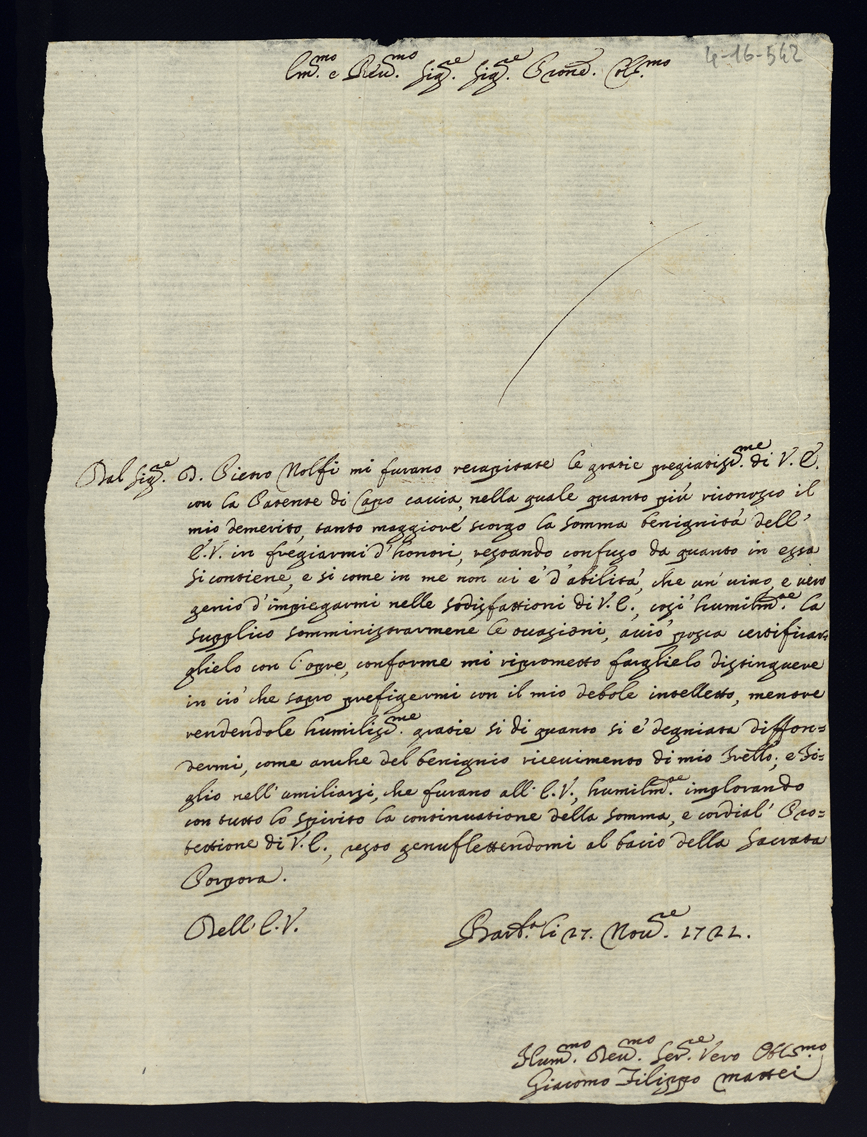 4-16-542
Em.mo e Reu.mo Sig.re Sig.re Prone. Col.mo
Dal Sig.re D. Pietro Nolfi mi furano recapitate le gratie pregiatiss.me di V.E.
con la Patente di Capo caccia, nella quale quanto più riconosco il
mio demerito, tanto maggiore scorgo la somma benignità dell'
E.V. in fregiarmi d'honori, restando confuso da quanto in essa
si contiene, e si come in me non ui è d'abilità, che un' uiuo, e uero
genio d'impiegarmi nelle sodisfattioni di V.E., così humilm.e la
supplico somministrarmene le ocasioni, acciò possa certificar-
glielo con l'opre, conforme mi riprometto farglielo distinguere
in ciò che sapro prefigermi con il mio debole intelletto, mentre
rendendole humiliss.me gratie si di quanto si è degniata diffon=
dermi, come anche del benignio riceuimento di mio Frello, e Fi=
glio nell'umiliarsi, che furano all'E.V., humilm.e implorando
con tutto lo spirito la continuatione della somma, e cordial' Pro=
tettione di V.E., resto genuflettendomi al bacio della Sacrata
Porpora.
Dell'E.V.
Barb.a li 27. Nou.re 1721.
Hum.mo Deu.mo Ser.re Vero Obl.mo
Giacomo Filippo Mattei